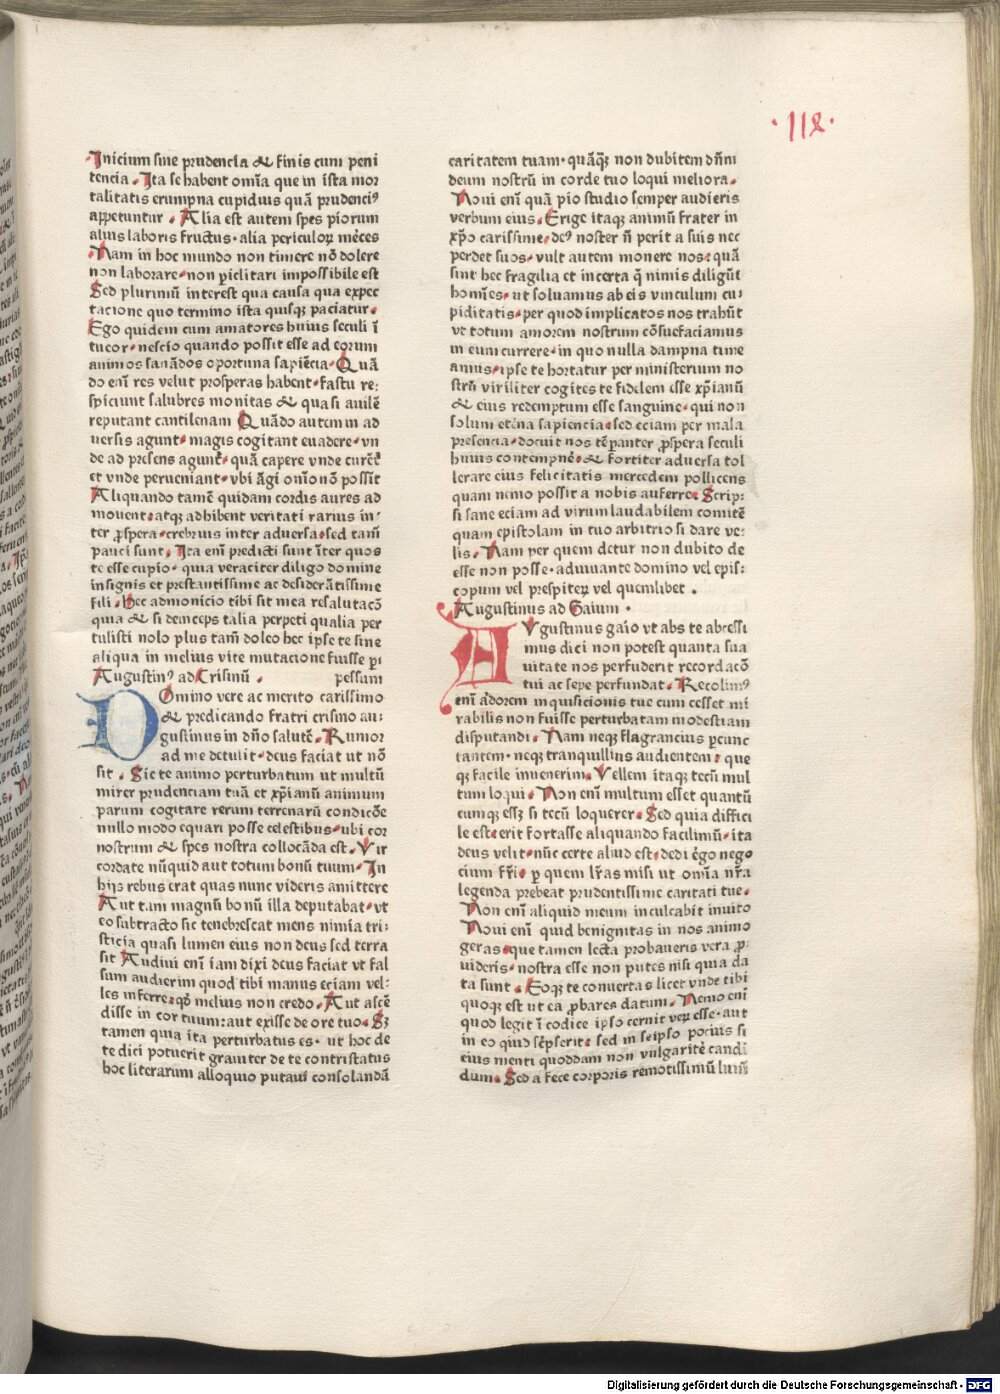 ·118·
Inicium sine prudencia & finis cum peni
tencia. Ita se habent om̄ia que in ista mor
talitatis erumpna cupidius quā prudenciꝰ
appetuntur. Alia est autem spes piorum
alius laboris fructus· alia periculoꝝ mēces
Nam in hoc mundo non timere nō dolere
non laborare· non ꝑiclitari impossibile est
Sed plurimū interest qua causa qua expec
tacione quo termino ista quisqꝫ paciatur·
Ego quidem cum amatores huius seculi ī
tueor· nescio quando possit esse ad eorum
animos sanādos oportuna sapiēcia· Quā
do enī res velut prosperas habent· fastu re⸗
spiciunt salubres monitas & quasi auilē
reputant cantilenam Quādo autem in ad
uersis agunt· magis cogitant euadere· vn
de ad presens agunt· quā capere vnde curēt
et vnde perueniant· vbi āgi om̄io nō possit
Aliquando tamē quidam cordis aures ad
mouent· atqꝫ adhibent veritati rarius in⸗
ter ꝓspera· crebrius inter aduersa· sed tam̄
pauci sunt. Ita enī predicti sunt īter quos
te esse cupio· quia veraciter diligo domine
insignis et prestantissime ac desiderātissime
fili· Hec admonicio tibi sit mea resalutacō
quia & si deinceps talia perpeti qualia per
tulisti nolo plus tam̄ doleo hec ipse te sine
aliqua in melius vite mutacione fuisse ꝑ⸗
Augustinꝰ ad Crisinū. pessum
Domino vere ac merito carissimo
& predicando fratri crisino au⸗
gustinus in dn̄o salutē. Rumor
ad me detulit· deus faciat ut nō
sit. Sic te animo perturbatum ut multū
mirer prudenciam tuā et xp̄ianū animum
parum cogitare rerum terrenarū condicōe
nullo modo equari posse celestibus· ubi cor
nostrum & spes nostra collocāda est. Vir
cordate nūquid aut totum bonū tuum· In
hijs rebus erat quas nunc videris amittere
Aut tam magnū bonū illa deputabat· ut
eo subtracto sic tenebrescat mens nimia tri⸗
sticia quasi lumen eius non deus sed terra
sit Audiui enī iam dixi deus faciat vt fal
sum audierim quod tibi manus eciam vel⸗
les inferre· qd̓ melius non credo. Aut ascē
disse in cor tuum: aut exisse de ore tuo. Sꝫ
tamen quia ita perturbatus es· ut hoc de
te dici potuerit grauiter de te contristatus
hoc literarum alloquio putaui consolandā
caritatem tuam· quāqꝫ non dubitem dn̄m
deum nostrū in corde tuo loqui meliora.
Noui enī quā pio studio semper audieris
verbum eius. Erige itaqꝫ animū frater in
xp̄o carissime· deꝰ noster n̄ perit a suis nec
perdet suos· vult autem monere nos· quā
sint hec fragilia et incerta q̄ nimis diligūt
hom̄ies· ut soluamus ab eis vinculum cu⸗
piditatis· per quod implicatos nos trahūt
vt totum amorem nostrum cōsuefaciamus
in eum currere· in quo nulla dampna time
amus· ipse te hortatur per ministerium no
strū viriliter cogites te fidelem esse xp̄ianū
& eius redemptum esse sanguine· qui non
solum etn̄a sapiencia· sed eciam per mala
presencia· docuit nos tēꝑanter ꝓspera seculi
huius contempnē· & fortiter aduersa tol
lerare eius felicitatis mercedem pollicens
quam nemo possit a nobis auferre. Scrip⸗
si sane eciam ad virum laudabilem comitē
quam epistolam in tuo arbitrio si dare ve⸗
lis. Nam per quem detur non dubito de
esse non posse· adiuuante domino vel epis⸗
copum vel prespiteꝝ vel quemlibet.
Augustinus ad Gaium·
AVgustinus gaio vt abs te abcessi
mus dici non potest quanta sua
uitate nos perfuderit recordacō
tui ac sepe perfundat. Recolimꝰ
enī ādorem inquisicionis tue cum esset mi
rabilis non fuisse perturbatam modestiam
disputandi. Nam neqꝫ flagrancius ꝑcunc
tantem· neqꝫ tranquillius audientem· que
qꝫ facile inuenerim. Vellem itaqꝫ tecū mul
tum loqui. Non enī multum esset quantū
cumqꝫ essꝫ si tecū loquerer. Sed quia diffici
le est· erit fortasse aliquando facilimū· ita
deus velit· nūc certe aliud est· dedi ēgo nego
cium fr̄i· ꝑ quem lr̄as misi ut om̄ia nr̄a
legenda prebeat prudentissime caritati tue.
Non enī aliquid meum inculcabit inuito
Noui enī quid benignitatis in nos animo
geras· que tamen lecta probaueris vera ꝓ⸗
uideris· nostra esse non putes nisi quia da
ta sunt. Eoqꝫ te conuertas licet vnde tibi
quoqꝫ est ut ea ꝓbares datum. Nemo enī
quod legit ī codice ipso cernit veꝝ esse· aut
in eo qui scripserit· sed in seipso pocius si
eius menti quoddam non vulgaritē candi
dum. Sed a fece corporis remotissimū lum̄
Digitalisierung gefördert durch die Deutsche Forschungsgemeinschaft - DFG